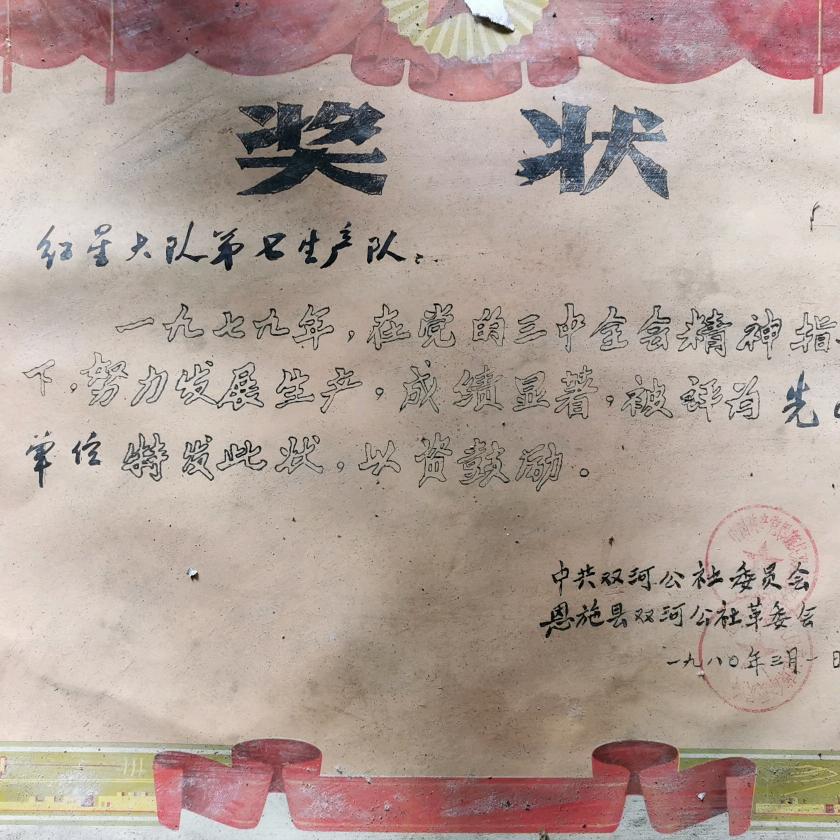 奖状
红星大队第七生产队:
一九七九年,在党的三中全会精神指
下,努力发展生产,成绩显著,被评为先
单位特发此状,以资鼓励。
中共双河公社委员会
恩施县双河公社革委会
一九八〇年三月一日